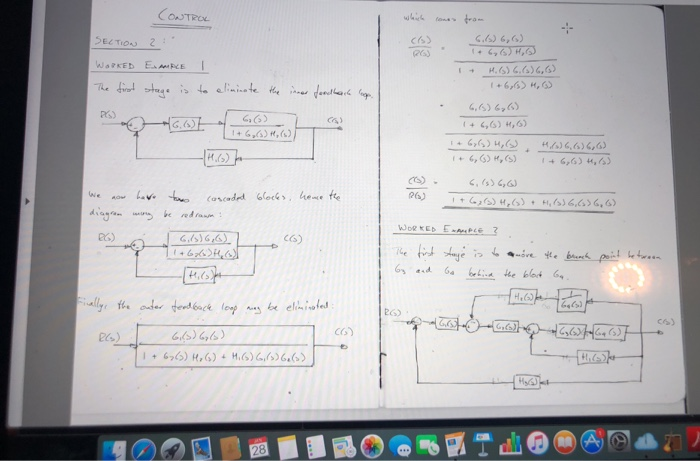 CONTROL
SECTION 2:
WORKED EXAMPLE 1
The first stage is to eliminate the inner feedback loop.
R(s) G₁(s) G₂(s) C(s)
1 + G₂(s) H₂(s)
H₁(s)
We now have two cascaded blocks, hence the
diagram may be redrawn:
R(s) G₁(s) G₂(s) C(s)
1 + G₂(s) H₂(s)
H₁(s)
Finally, the outer feedback loop may be eliminated:
R(s) G₁(s) G₂(s) C(s)
1 + G₂(s) H₂(s) + H₁(s) G₁(s) G₂(s)
which comes from
C(s) G₁(s) G₂(s)
R(s) 1 + G₂(s) H₂(s)
1 + H₁(s) G₁(s) G₂(s)
1 + G₂(s) H₂(s)
G₁(s) G₂(s)
1 + G₂(s) H₂(s)
1 + G₂(s) H₂(s) + H₁(s) G₁(s) G₂(s)
1 + G₂(s) H₂(s) 1 + G₂(s) H₂(s)
C(s) = G₁(s) G₂(s)
R(s) 1 + G₂(s) H₂(s) + H₁(s) G₁(s) G₂(s)
WORKED EXAMPLE 2
The first stage is to move the branch point between
G₃ and G₄ behind the block G₄.
H₂(s) 1
G₄(s)
R(s) G₁(s) G₂(s) G₃(s) G₄(s) C(s)
H₁(s)
H₃(s)
28